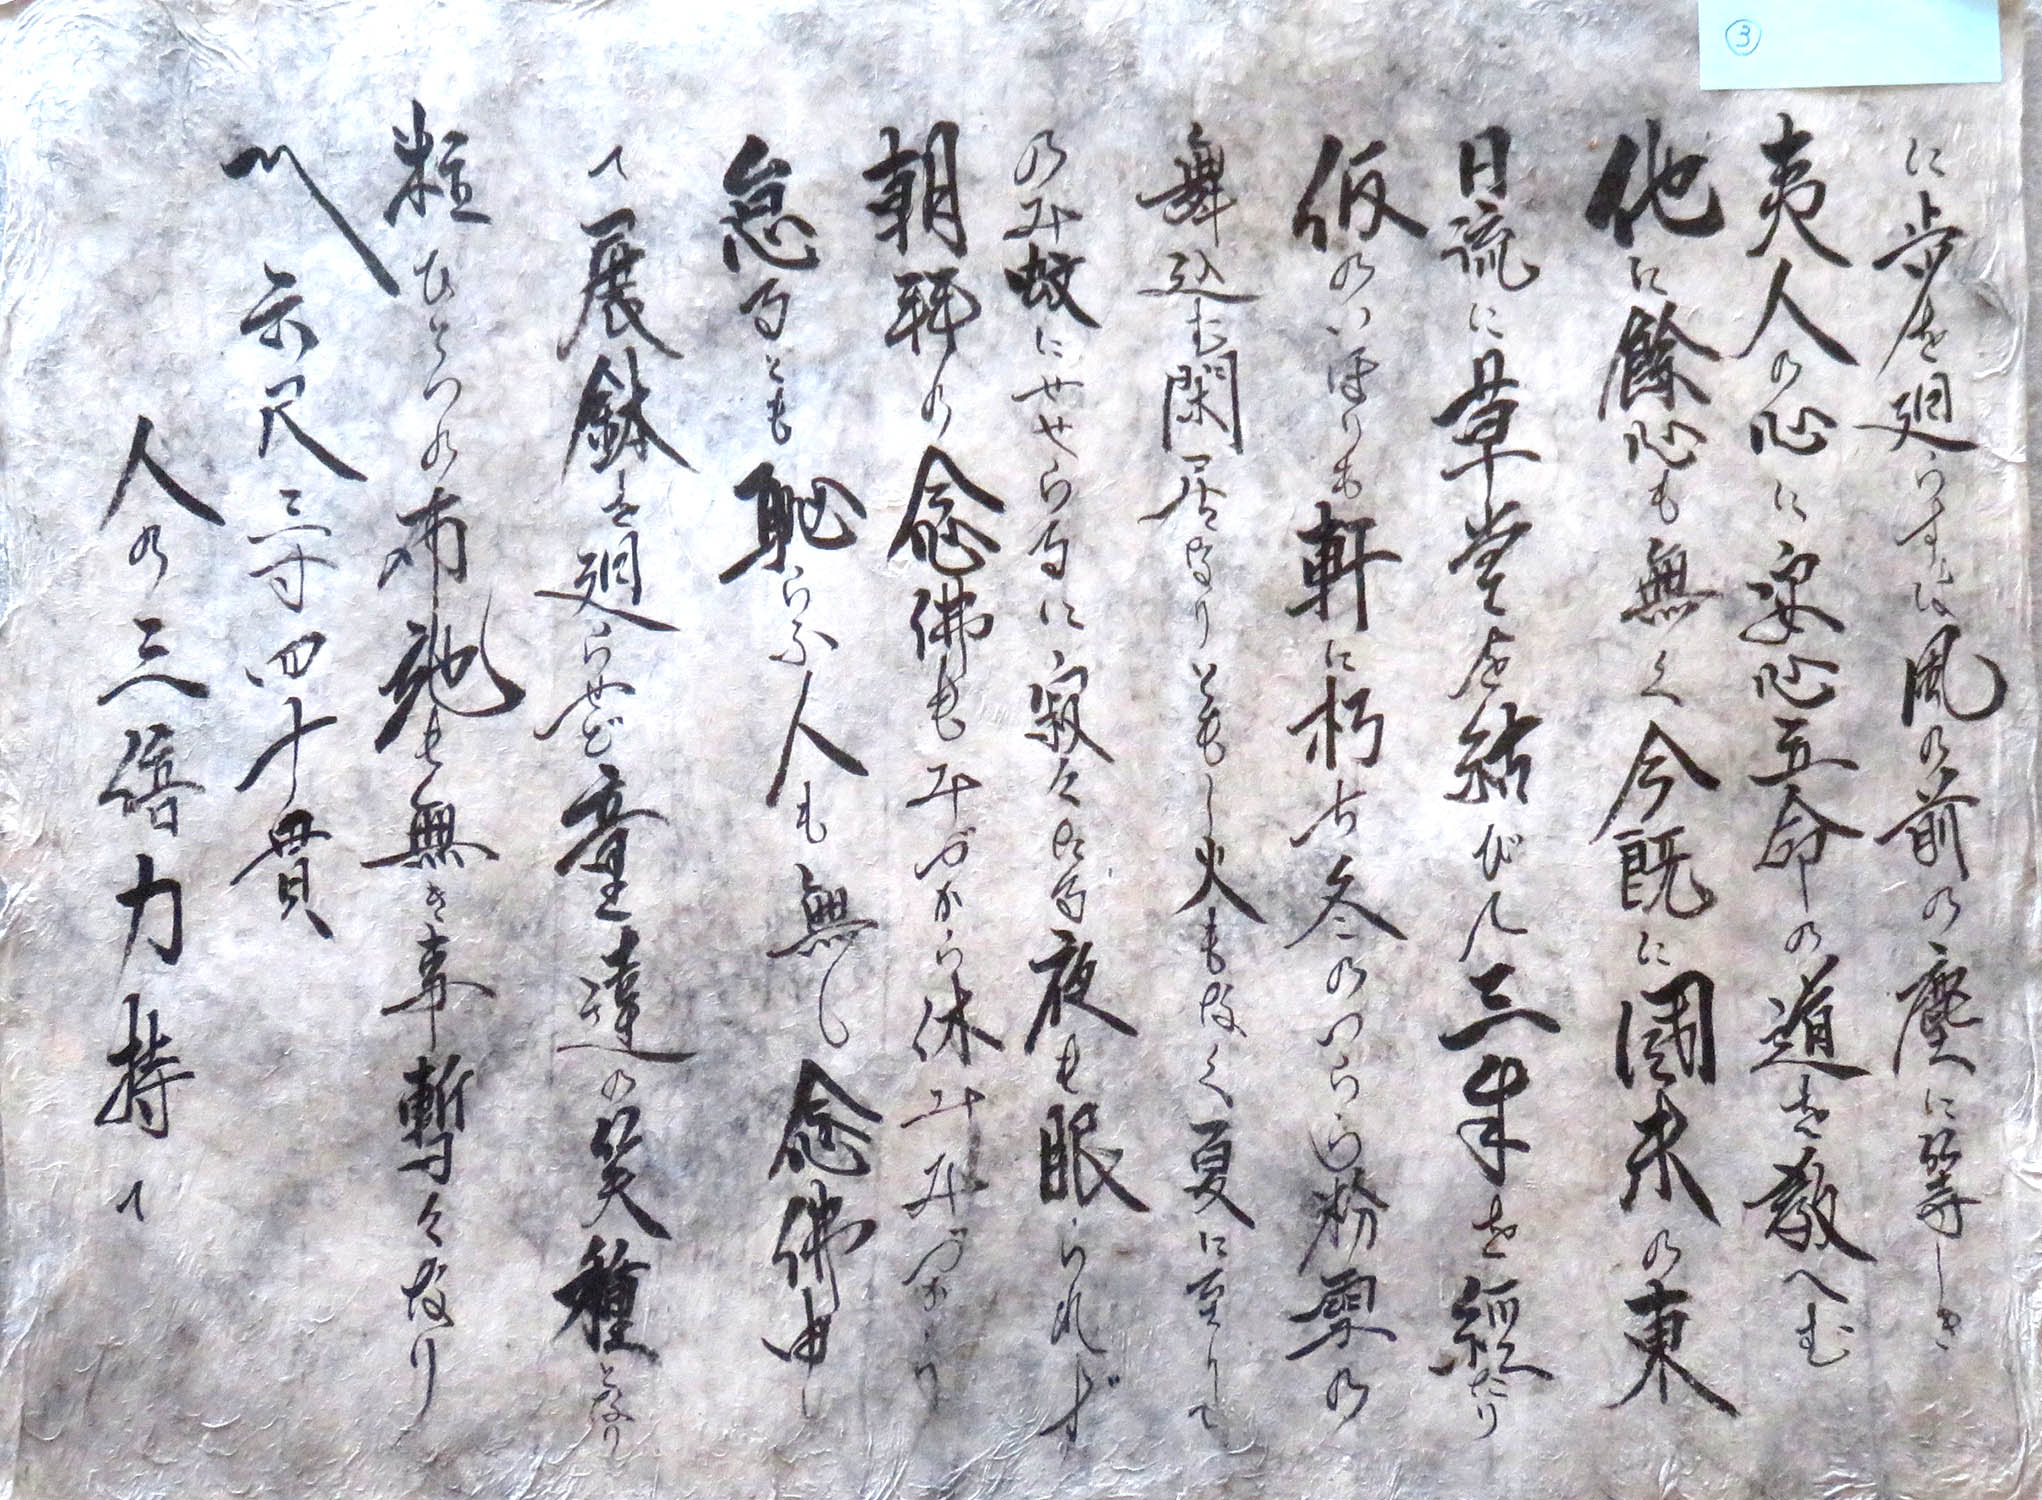 ③
に歩を廻らすは風の前の塵に等しき
夷人の心に安心立命の道を教へむ
他に餘心も無く今既に圀末の東
日流に草堂を結びん三年を経たり
仮のいほりも軒に朽ち冬のいららに粉雪の
舞込む閑居なりともし火もなく夏に至りて
のみ蚊にせせらるに寂々たる夜も眠られず
朝拝の念佛もみづから休みみづから
怠るとも恥らふ人も無し念佛申し
て展鉢を廻らせど童達の笑種となり
粒ひとつの布施も無き事暫々なり
六尺三寸四十貫
人の三倍力持て